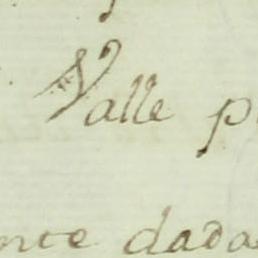 Valle p
nte dada